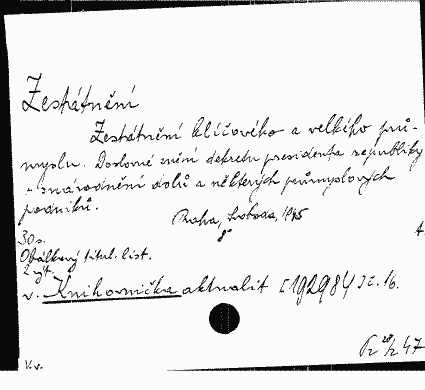 Zestátnění
Zestátnění klíčového a velkého prů-
myslu. Doslovné znění dekretu presidenta republiky
o znárodnění dolů a některých průmyslových
podniků.
Praha, Svoboda, 1945
8°
30 s.
Obálkový titul. list.
2 výt.
v. Knihovnička aktualit [192984] č. 16.
Pr 28/2 47
V. v.